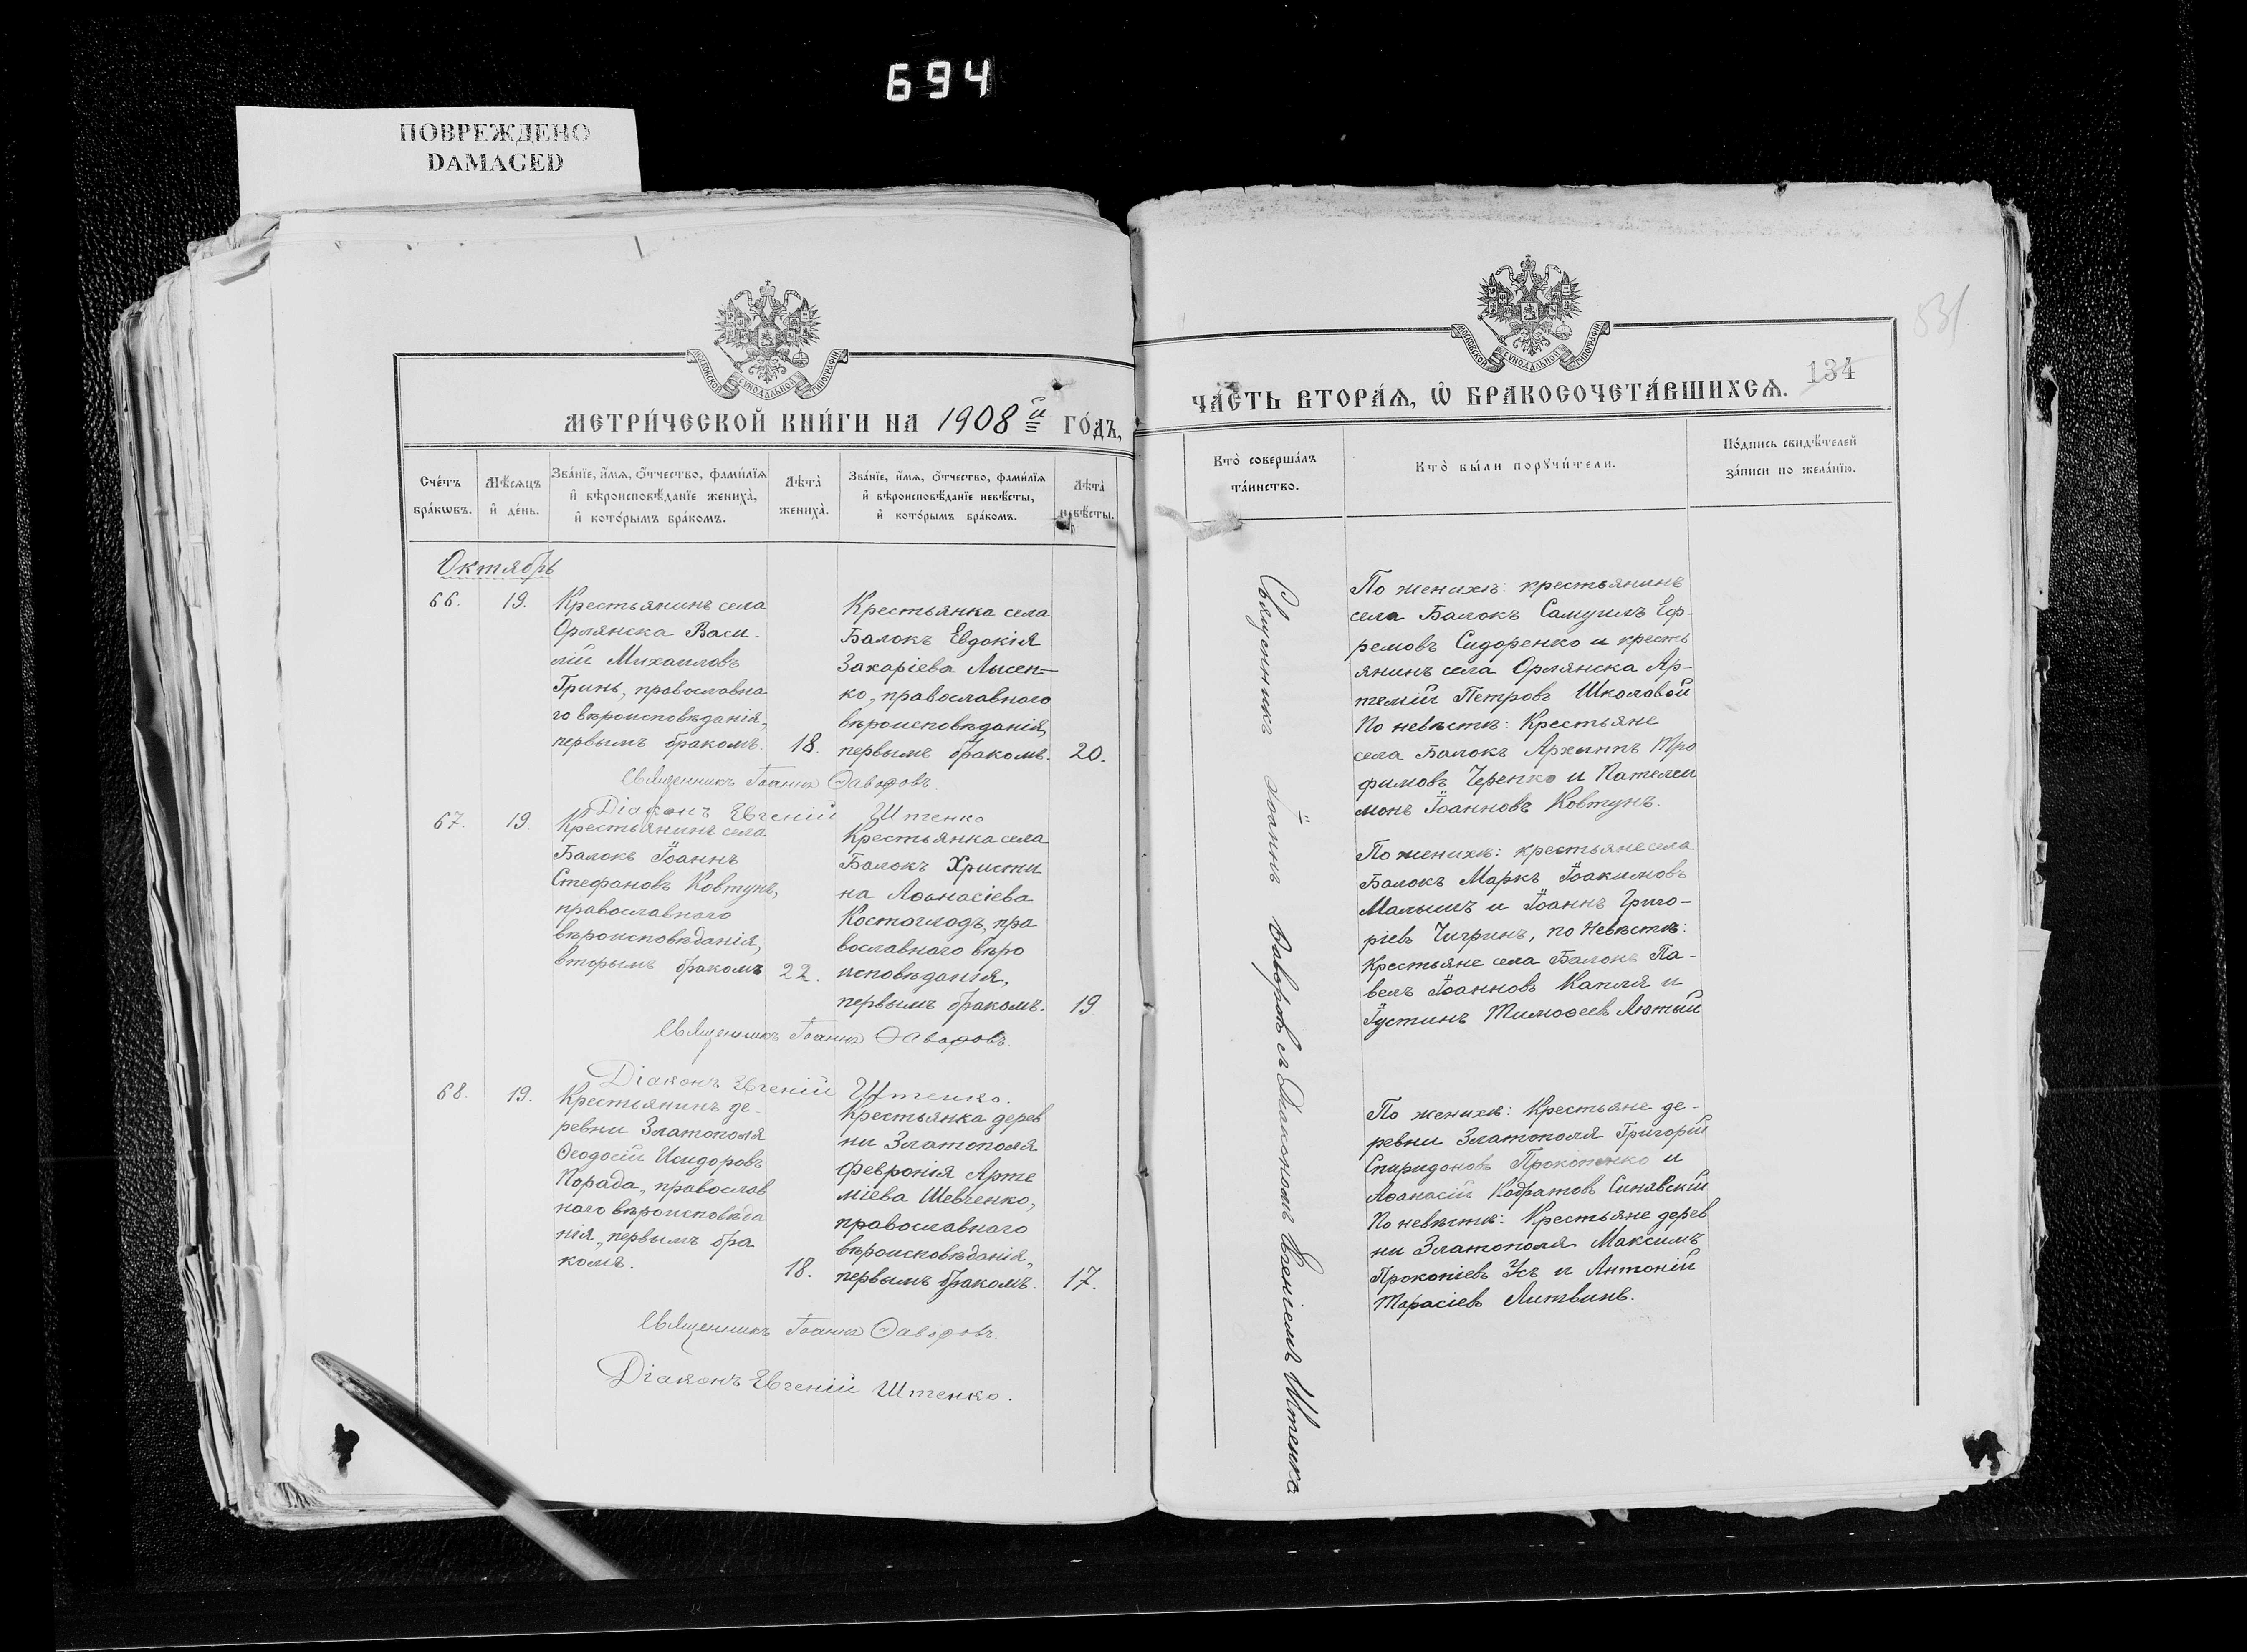 694
ПОВРЕЖДЕНО
DAMAGED
МОСКОВСКОЙ СѴНОДАЛЬНОЙ ТИПОГРАФІИ
МЕТРИ́ЧЕСКОЙ КНИ́ГИ НА 1908й ГО́ДЪ,
Сче́тъ бра́кѡвъ.
Мѣ́сяцъ и҆ де́нь.
Зва́нїе, и҆́мѧ, ѻ҆́тчество, фами́лїѧ и҆ вѣроисповѣ́данїе жениха̀, и҆ кото́рымъ бра́комъ.
Лѣ́та̀ жениха̀.
Зва́нїе, и҆́мѧ, ѻ҆́тчество, фами́лїѧ и҆ вѣроисповѣ́данїе невѣ́сты, и҆ кото́рымъ бра́комъ.
Лѣ́та̀ невѣ́сты.
Октябрь
66.
19.
Крестьянинъ села
Орлянска Васи-
лій Михаиловъ
Гринь, православна
го вѣроисповѣданія,
первымъ бракомъ.
18.
Крестьянка села
Балокъ Евдокія
Захаріева Лысен-
ко, православнаго
вѣроисповѣданія,
первымъ бракомъ.
20.
Священникъ Іоаннъ Ѳаворовъ.
Діаконъ Евгеній Штенко
67.
19.
Крестьянинъ села
Балокъ Іоаннъ
Стефановъ Ковтунъ,
православнаго
вѣроисповѣданія,
вторымъ бракомъ
22.
Крестьянка села
Балокъ Христи
на Аѳанасіева
Костоглодъ, пра
вославнаго вѣро
исповѣданія,
первымъ бракомъ.
19
Священникъ Іоаннъ Ѳаворовъ.
Діаконъ Евгеній Штенко.
68.
19.
Крестьянинъ де-
ревни Златополя
Ѳеодосій Исидоровъ
Порада, православ
наго вѣроисповѣда
нія, первымъ бра
комъ.
18.
Крестьянка дерев
ни Златополя
Февронія Арте
міева Шевченко,
православнаго
вѣроисповѣданія,
первымъ бракомъ.
17.
Священникъ Іоаннъ Ѳаворовъ.
Діаконъ Евгеній Штенко.
МОСКОВСКОЙ СѴНОДАЛЬНОЙ ТИПОГРАФІИ
531
134
ЧА́СТЬ ВТОРА́Ѧ, Ѡ҆ БРАКОСОЧЕТА́ВШИХСѦ.
Кто̀ соверша́лъ та́инство.
Кто̀ бы́ли порꙋчи́тели.
По́дпись свидѣ́телей за́писи по жела́нїю.
Священникъ Іоаннъ Ѳаворовъ съ Діакономъ Евгеніемъ Штенко
По женихѣ: крестьянинъ
села Балокъ Самуилъ Еф-
ремовъ Сидоренко и кресть
янинъ села Орлянска Ар-
темій Петровъ Школовой
По невѣстѣ: Крестьяне
села Балокъ Архиппъ Тро
фимовъ Черепко и Пателеи
монъ Іоанновъ Ковтунъ.
По женихѣ: крестьяне села
Балокъ Маркъ Іоакимовъ
Малышъ и Іоаннъ Григо-
ріевъ Чигринъ, по невѣстѣ:
Крестьяне села Балокъ Па-
велъ Іоанновъ Капля и
Іустинъ Тимоѳеевъ Лютый
По женихѣ: Крестьяне де-
ревни Златополя Григорій
Спиридоновъ Прокопенко и
Аѳанасій Кодратовъ Синявскій
По невѣстѣ: Крестьяне дерев
ни Златополя Максимъ
Прокопіевъ Усъ и Антоній
Тарасіевъ Литвинъ.